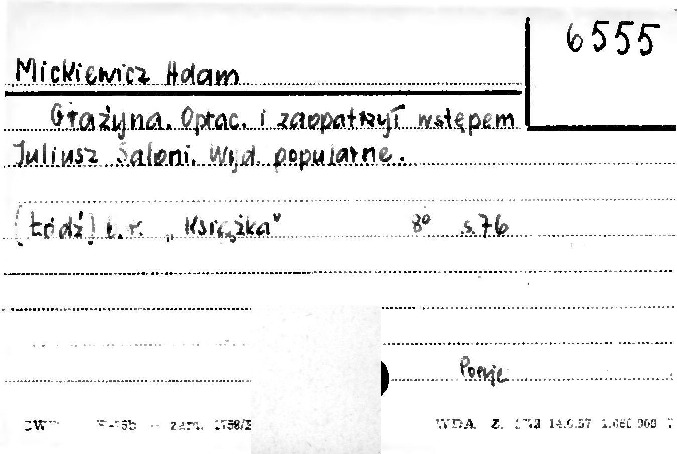 6555
Mickiewicz Adam
Grażyna. Oprac. i zaopatrzył wstępem
Juliusz Saloni. Wyd. popularne.
[Łódź] b.r. „Książka" 8° s.76
Poezje
zam. 1758/ WDA Z. 14.6.57